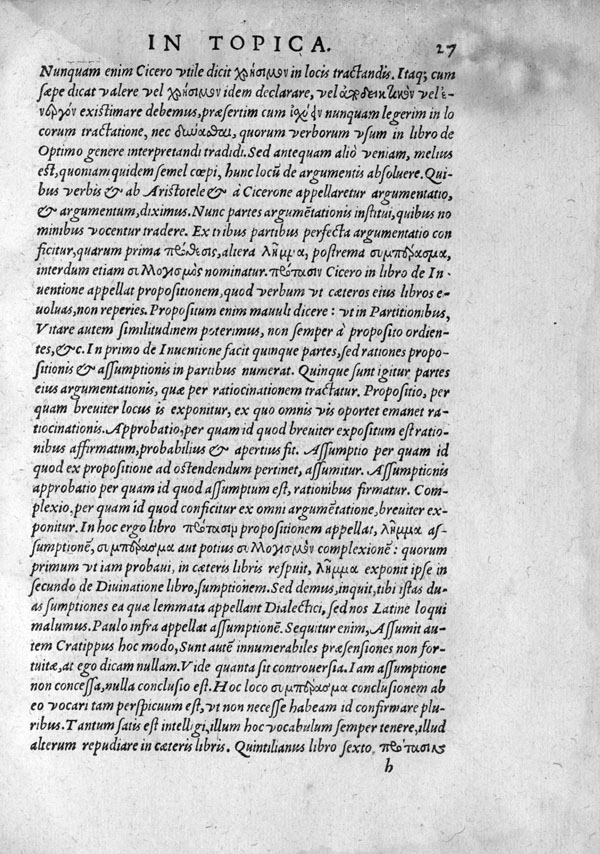 IN TOPICA. 27
Nunquam enim Cicero vtile dicit χρήσιμον in locis tractandis. Itaq; cum
sæpe dicat valere vel χρήσιμον idem declarare, vel ἀποδεικτικὸν vel ἐ-
νεργὸν existimare debemus, præsertim cum ἰσχύειν nunquam legerim in lo
corum tractatione, nec δύναϑαι, quorum verborum vsum in libro de
Optimo genere interpretandi tradidi. Sed antequam aliò veniam, melius
est, quoniam quidem semel cœpi, hunc locū de argumentis absoluere. Qui-
bus verbis & ab Aristotele & à Cicerone appellaretur argumentatio,
& argumentum, diximus. Nunc partes argumētationis institui, quibus no
minibus vocentur tradere. Ex tribus partibus perfecta argumentatio con
ficitur, quarum prima πρόθεσις, altera λῆμμα, postrema συμπέρασμα,
interdum etiam συλλογισμὸς nominatur. πρότασιν Cicero in libro de In-
uentione appellat propositionem, quod verbum vt cæteros eius libros e-
uoluas, non reperies. Propositum enim mauult dicere: vt in Partitionibus,
Vitare autem similitudinem poterimus, non semper à proposito ordien-
tes, &c. In primo de Inuentione facit quinque partes, sed rationes propo-
sitionis & assumptionis in partibus numerat. Quinque sunt igitur partes
eius argumentationis, quæ per ratiocinationem tractatur. Propositio, per
quam breuiter locus is exponitur, ex quo omnis vis oportet emanet ra-
tiocinationis. Approbatio, per quam id quod breuiter expositum est ratio-
nibus affirmatum, probabilius & apertius fit. Assumptio per quam id
quod ex propositione ad ostendendum pertinet, assumitur. Assumptionis
approbatio per quam id quod assumptum est, rationibus firmatur. Com-
plexio, per quam id quod conficitur ex omni argumētatione, breuiter ex-
ponitur. In hoc ergo libro πρότασιμ propositionem appellat, λῆμμα as-
sumptionē, συμπέρασμα aut potius συλλογισμὸν complexionē: quorum
primum vt iam probaui, in cæteris libris respuit, λῆμμα exponit ipse in
secundo de Diuinatione libro, sumptionem. Sed demus, inquit, tibi istas du-
as sumptiones ea quæ lemmata appellant Dialectici, sed nos Latine loqui
malumus. Paulo infra appellat assumptionē. Sequitur enim, Assumit au-
tem Cratippus hoc modo, Sunt autē innumerabiles præsensiones non for-
tuitæ, at ego dicam nullam. Vide quanta sit controuersia. Iam assumptione
non concessa, nulla conclusio est. Hoc loco συμπέρασμα conclusionem ab
eo vocari tam perspicuum est, vt non necesse habeam id confirmare plu-
ribus. Tantum satis est intelligi, illum hoc vocabulum semper tenere, illud
alterum repudiare in cæteris libris. Quintilianus libro sexto πρότασις
h